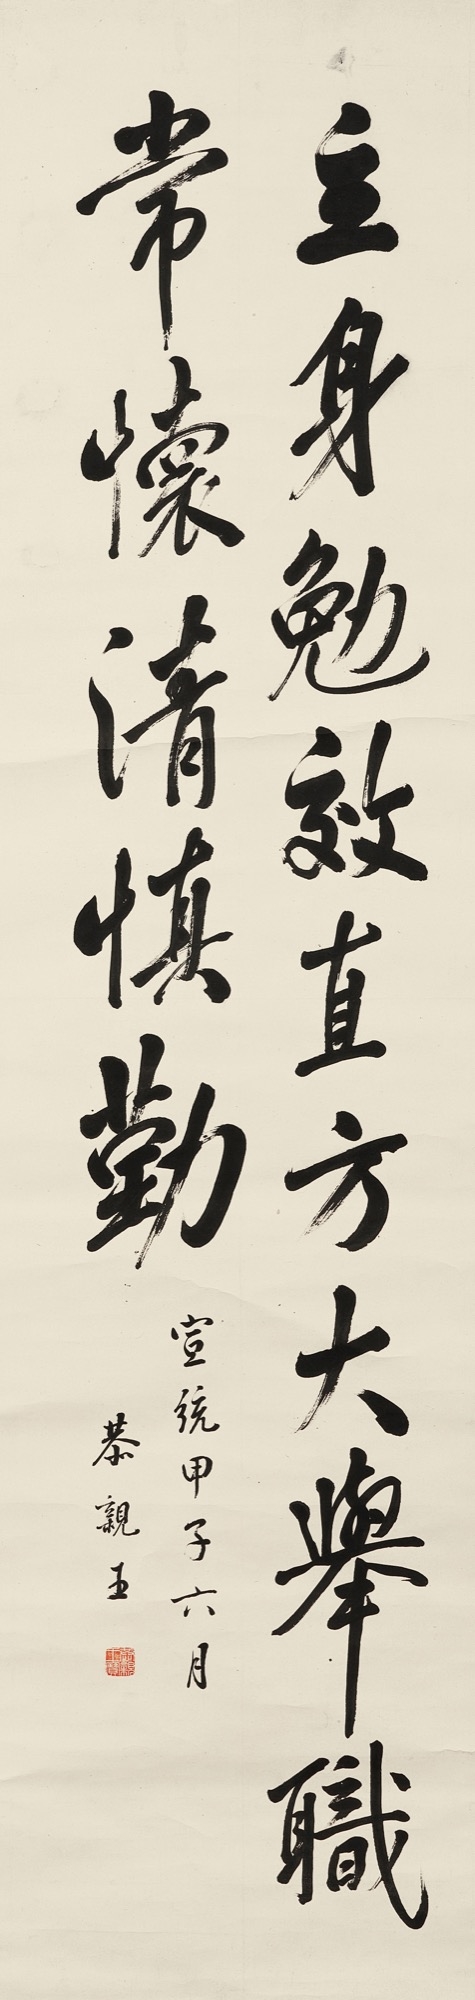 立身勉效直方大舉職
常懷清慎勤
宣統甲子六月
恭親王